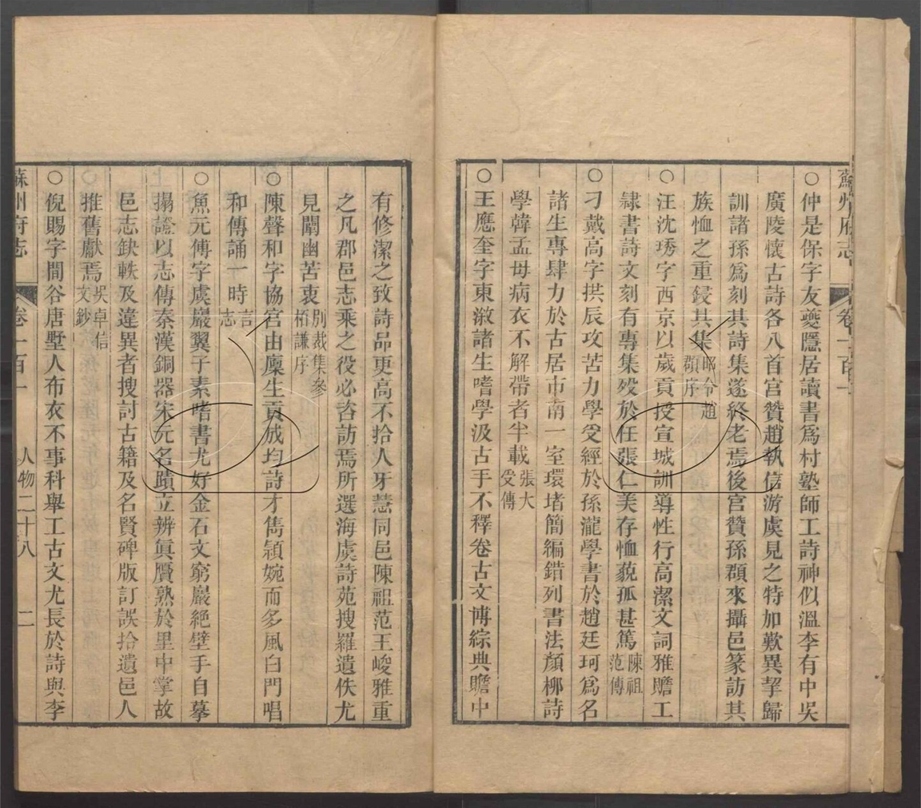 蘇州府志 卷一百一
○仲是保字友夔隱居讀書爲村塾師工詩神似溫李有中吳
廣陵懷古詩各八首宮贊趙執信游虞見之特加歎異挈歸
訓諸孫爲刻其詩集遂終老焉後宮贊孫頵來攝邑篆訪其
族恤之重鋟其集昭令趙頵序
○汪沈琇字西京以歲貢授宣城訓導性行高潔文詞雅贍工
隷書詩文刻有專集歿於任張仁美存恤藐孤甚篤陳祖范傳
○刁戴高字拱辰攻苦力學受經於孫瀧學書於趙廷珂爲名
諸生專肆力於古居市南一室環堵簡編錯列書法顏柳詩
學韓孟母病衣不解帶者半載張大受傳
○王應奎字東漵諸生嗜學汲古手不釋卷古文博綜典贍中
有修潔之致詩品更高不拾人牙慧同邑陳祖范王峻雅重
之凡郡邑志乘之役必咨訪焉所選海虞詩苑搜羅遺佚尤
見闡幽苦衷別裁集參栢謙序
○陳聲和字協宮由廩生貢成均詩才雋穎婉而多風白門唱
和傳誦一時言志
○魚元傅字虞巖翼子素嗜書尤好金石文窮巖絕壁手自摹
搨證以志傳泰漢銅器宋元名蹟立辨眞贋熟於里中掌故
邑志缺軼及違異者搜討古籍及名賢碑版訂誤拾遺邑人
推舊獻焉吳卓信文鈔
○倪賜字閒谷唐墅人布衣不事科舉工古文尤長於詩與李
蘇州府志 卷一百一 人物二十八 二